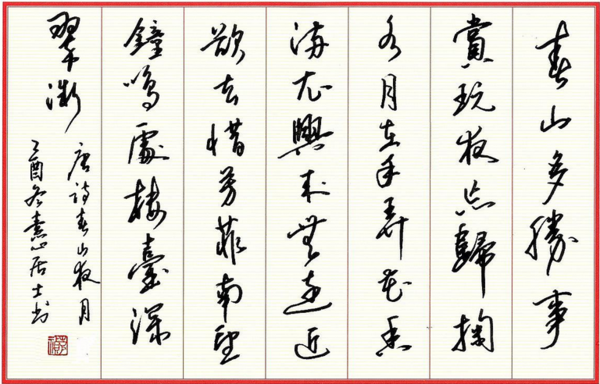 春山多勝事
賞玩夜忘歸掬
水月在手弄花香
滿衣興來無遠近
欲去惜芳菲南望
鐘鳴處樓臺深
翠微
唐詩春山夜月
乙酉冬居士书